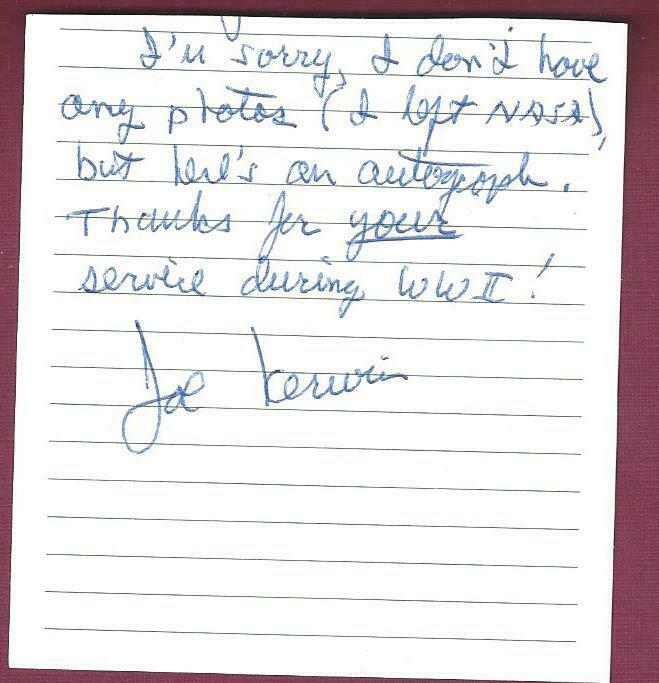 I'm sorry, I don't have
any photos (I left NASA),
but here's an autograph.
Thanks for your
service during WWII!
Joe Kerwin